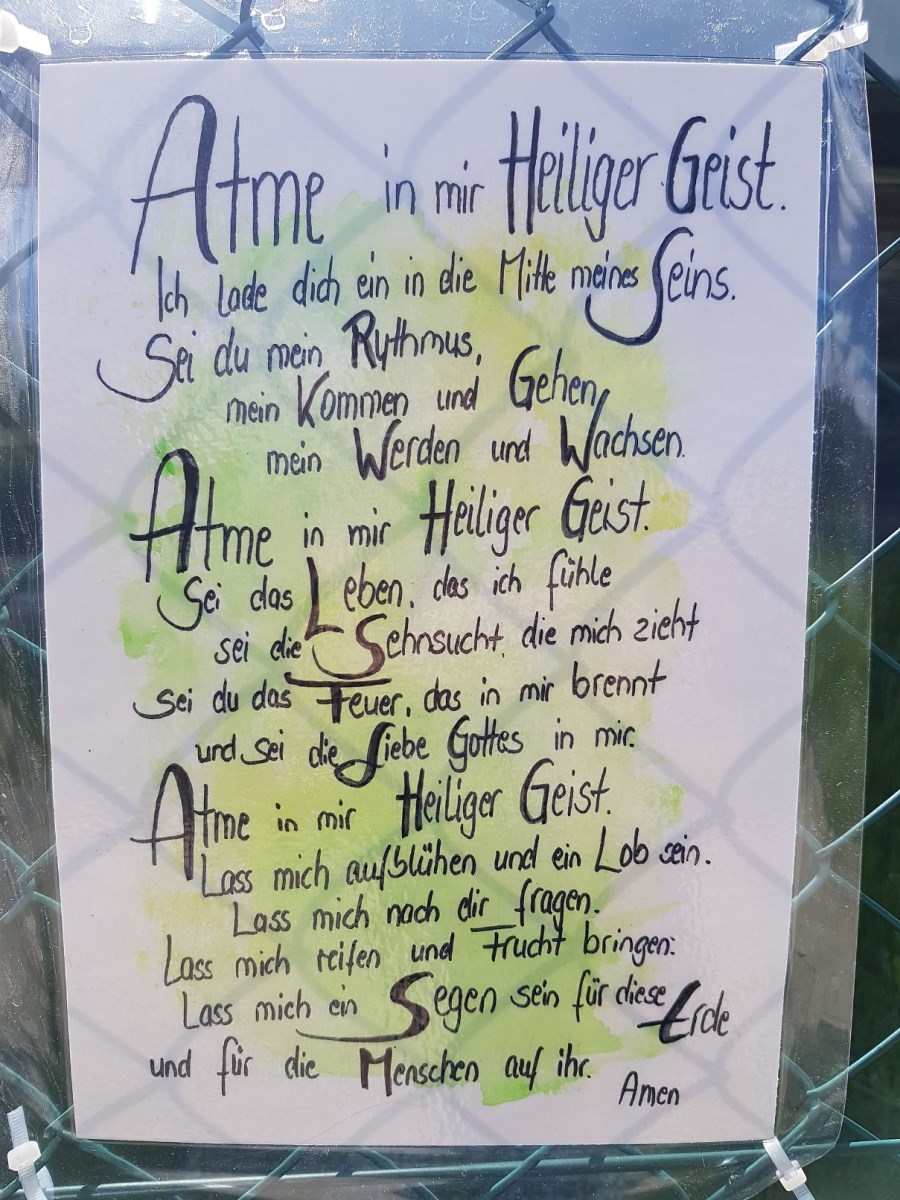 Atme in mir Heiliger Geist.
Ich lade dich ein in die Mitte meines Seins.
Sei du mein Rythmus,
mein Kommen und Gehen,
mein Werden und Wachsen.
Atme in mir Heiliger Geist.
Sei das Leben, das ich fühle
sei die Sehnsucht, die mich zieht
sei du das Feuer, das in mir brennt
und sei die Liebe Gottes in mir.
Atme in mir Heiliger Geist.
Lass mich aufblühen und ein Lob sein.
Lass mich nach dir fragen.
Lass mich reifen und Frucht bringen.
Lass mich ein Segen sein für diese Erde
und für die Menschen auf ihr.
Amen